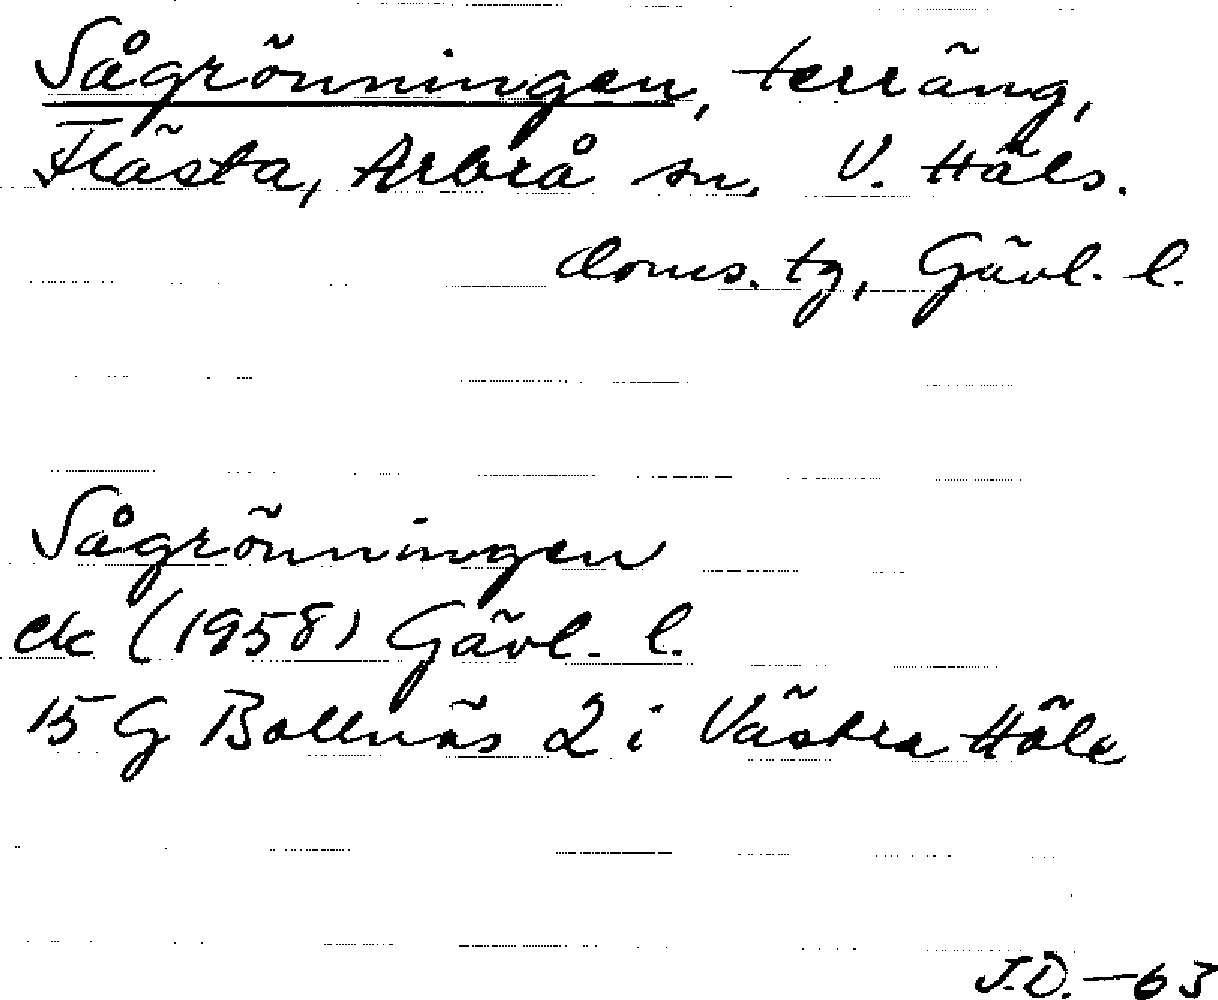 Sågrönningen, terräng,
Flästa, Arbrå sn. V. Häls.
doms. tg, Gävl. l.
Sågrönningen
ek (1958) Gävl. l.
15 G Bollnäs 2 i Västra Häls
J.D. -63